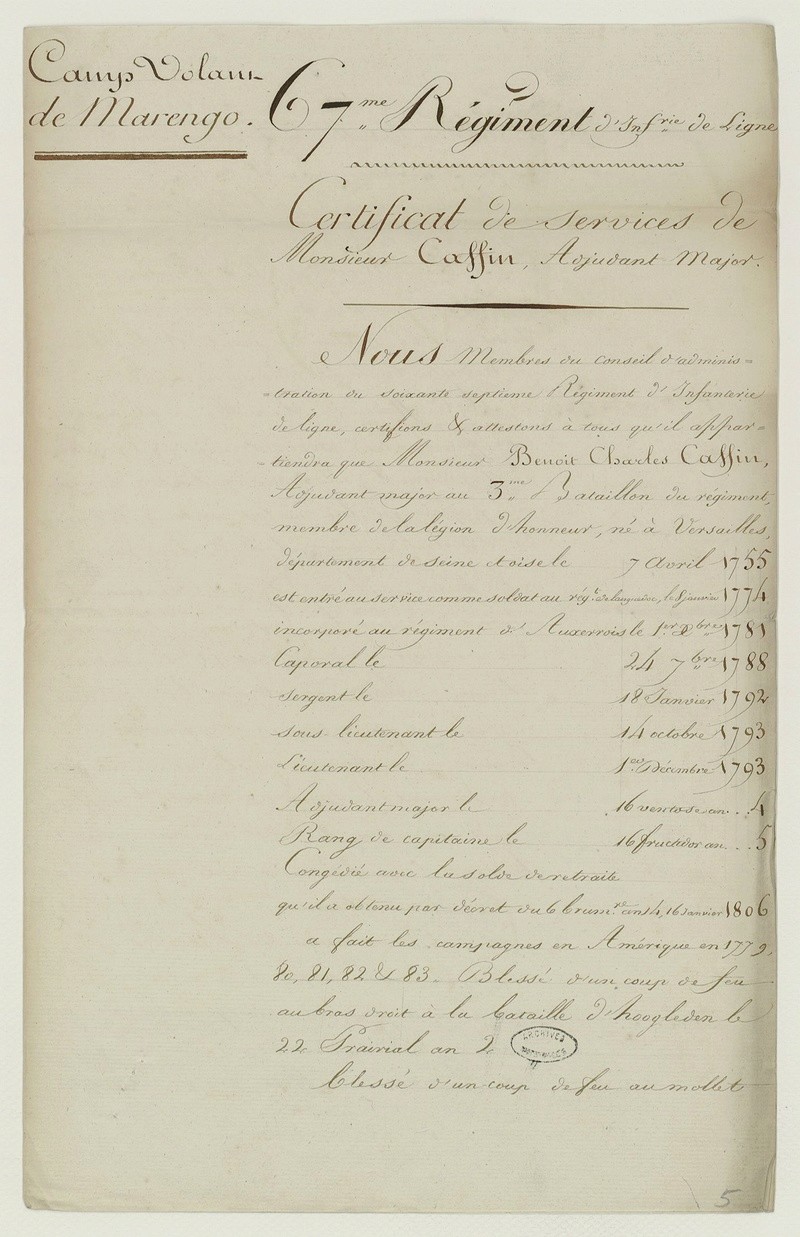 Camp Volant
de Marengo.
67me Régiment d'Infrie de Ligne
Certificat de services de
Monsieur Cassin, Adjudant Major.
Nous Membres du Conseil d'adminis=
=tration du soixante septieme Régiment d'Infanterie
de ligne, certifions & attestons à tous qu'il appar=
=tiendra que Monsieur Benoit Charles Cassin,
Adjudant major au 3me Bataillon du régiment,
membre de la légion d'honneur, né à Versailles,
département de seine et oise le 7 Avril 1755
est entré au service comme soldat au régt. de languedoc, le 8 janvier 1774
incorporé au régiment d'Auxerrois le 1er Xbre 1781
Caporal le 24 7bre 1788
sergent le 18 Janvier 1792
sous lieutenant le 14 octobre 1793
Lieutenant le 1er Décembre 1793
Adjudant major le 16 ventose an . . 4
Rang de capitaine le 16 fructidor an . . 5
Congédié avec la solde de retraite
qu'il a obtenu par décret du 6 brumre an 14, 16 Janvier 1806
a fait les campagnes en Amérique en 1779,
80, 81, 82 & 83. Blessé d'un coup de feu
au bras droit à la bataille d'hoogleden le
22 Prairial an 2
ARCHIVES
blessé d'un coup de feu au mollet
5